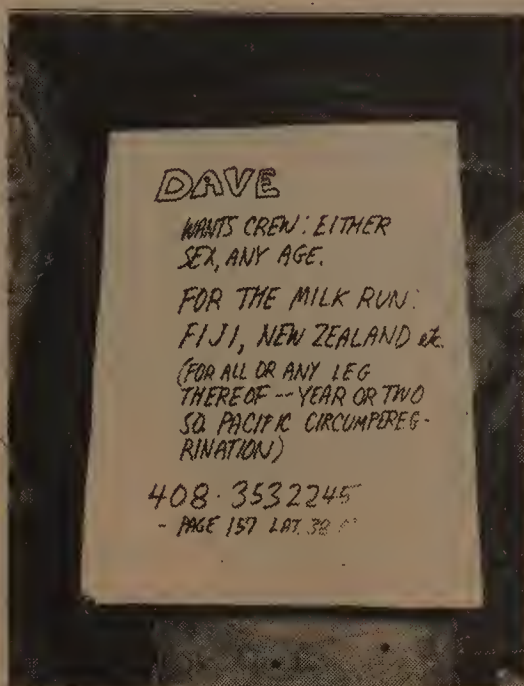 DAVE
WANTS CREW: EITHER
SEX, ANY AGE.
FOR THE MILK RUN:
FIJI, NEW ZEALAND etc.
(FOR ALL OR ANY LEG
THEREOF -- YEAR OR TWO
SO. PACIFIC CIRCUMPEREG-
RINATION)
408·3532245
- PAGE 157 LAT. 38